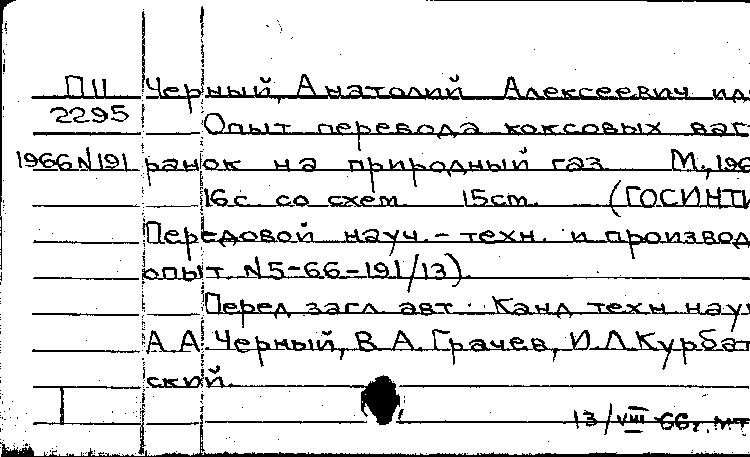 П11 Черный, Анатолий Алексеевич и др
2295 Опыт перевода коксовых ваг
1966 N191 ранок на природный газ М., 196
16 с. со схем. 15 cm. (ГОСИНТИ
Передовой науч.-техн. и производ
опыт. N5-66-191/13).
Перед загл. авт.: Канд техн наук
А.А.Черный, В.А.Грачев, И.Л.Курбат
ский.
13/VIII 66г. мт